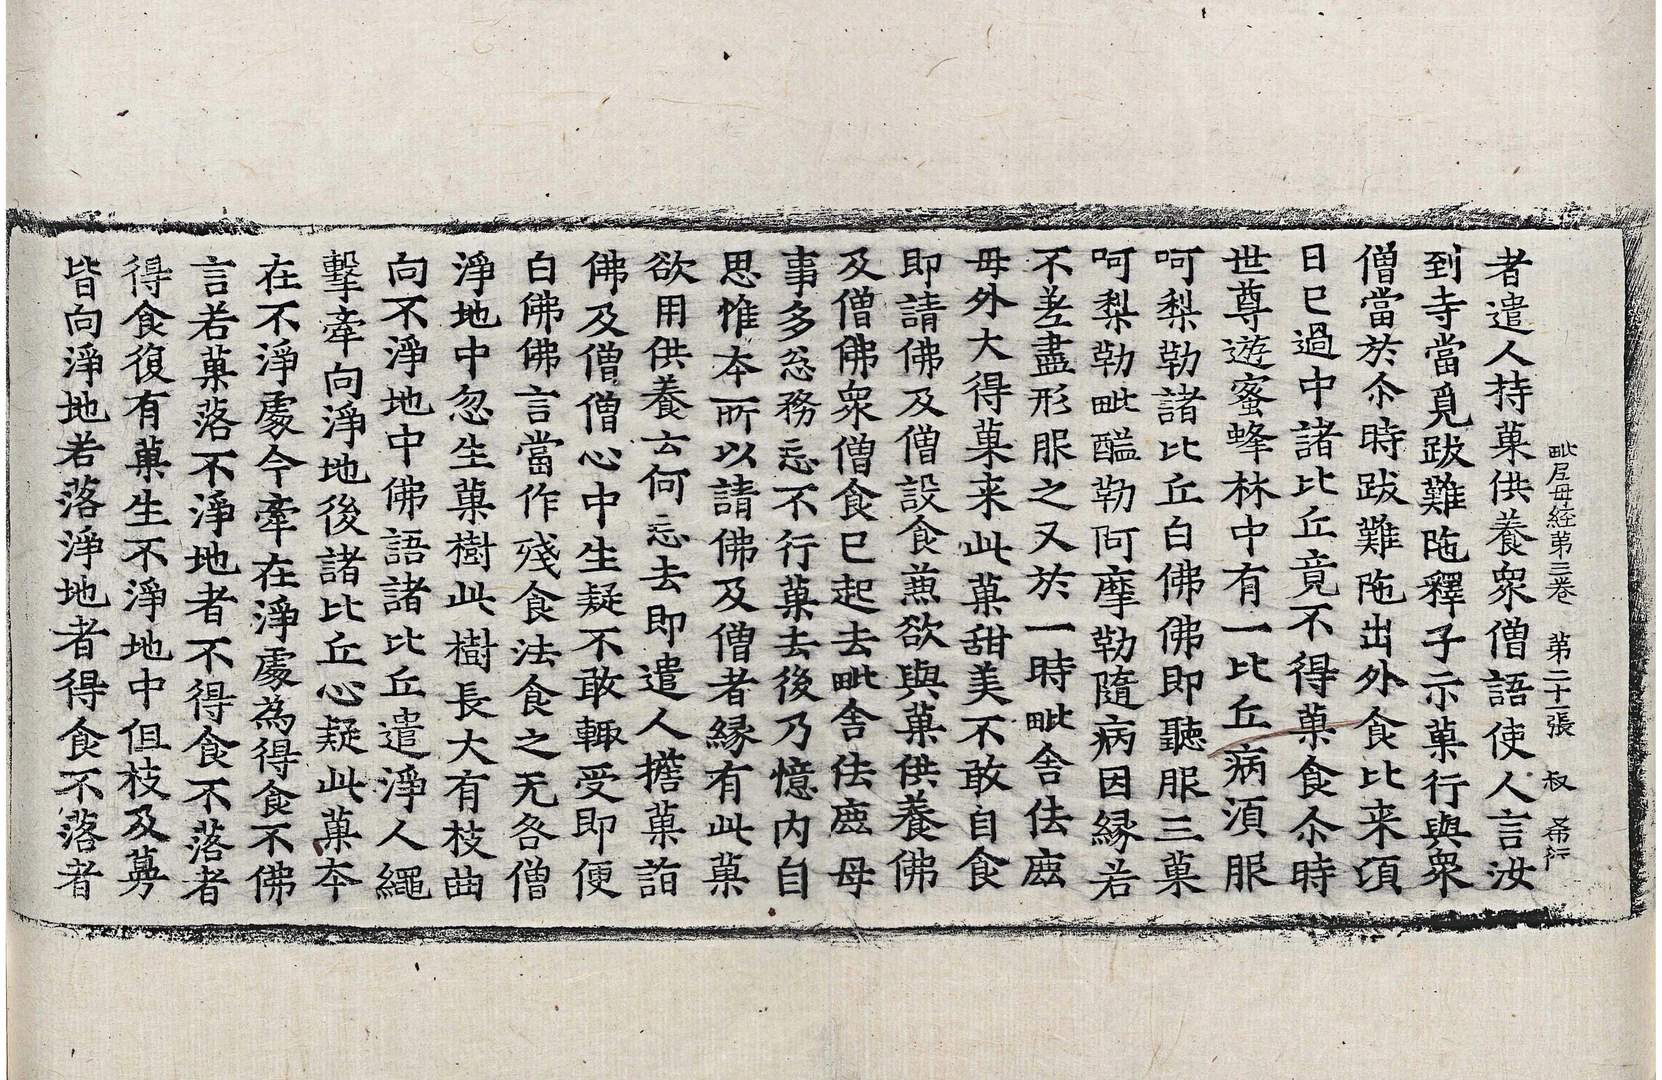 毗尼母經第三卷 第二十一張 叔
者遣人持菓供養衆僧語使人言汝
到寺當覓跋難陁釋子示菓行與衆
僧當於尒時跋難陁出外食比来須
日巳過中諸比丘竟不得菓食尒時
世尊遊蜜蜂林中有一比丘病湏服
呵梨勒諸比丘白佛佛即聽服三菓
呵梨勒毗醯勒阿摩勒隨病因縁若
不差盡形服之又於一時毗舍佉䴢
母外大得菓来此菓甜美不敢自食
即請佛及僧設食䓈欲與菓供養佛
及僧佛衆僧食巳起去毗舍佉䴢母
事多忩務忘不行菓去後乃憶内自
思惟本所以請佛及僧者縁有此菓
欲用供養云何忘去即遣人擔菓詣
佛及僧僧心中生疑不敢輙受即便
白佛佛言當作殘食法食之无各僧
淨地中忽生菓樹此樹長大有枝曲
向不淨地中佛語諸比丘遣淨人繩
擊牽向淨地後諸比丘心疑此菓本
在不淨處今牽在淨處為得食不佛
言若菓落不淨地者不得食不落者
得食復有菓生不淨地中但枝及蔓
皆向淨地若落淨地者得食不落者